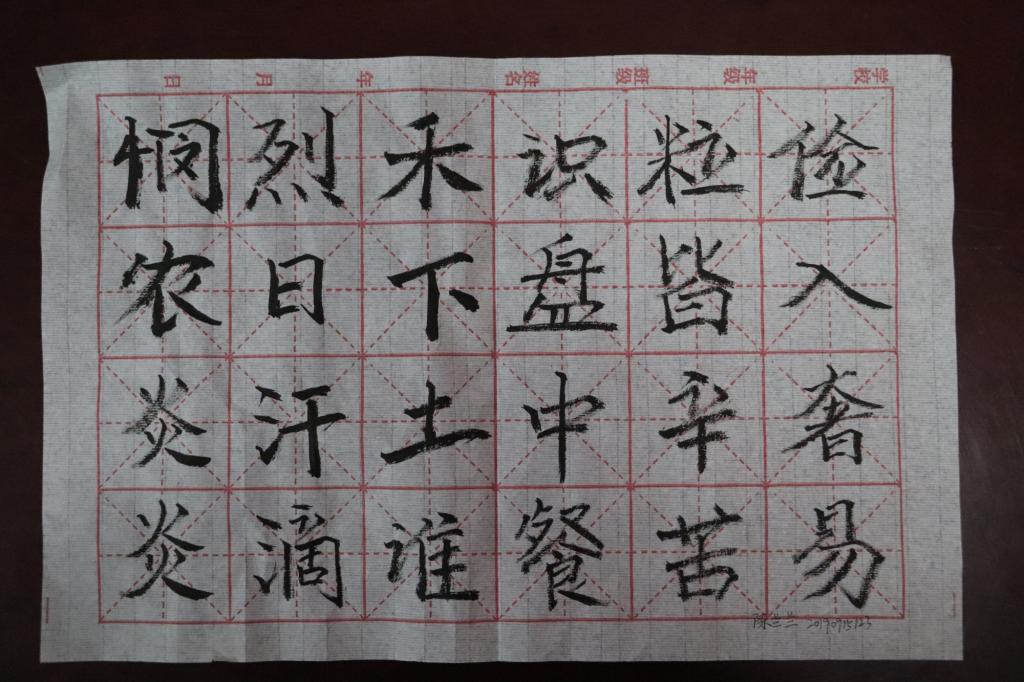 学校 年级 班级 姓名 年 月 日
悯农炎炎
烈日汗滴
禾下土谁
识盘中餐
粒皆辛苦
俭入奢易
陈兰兰